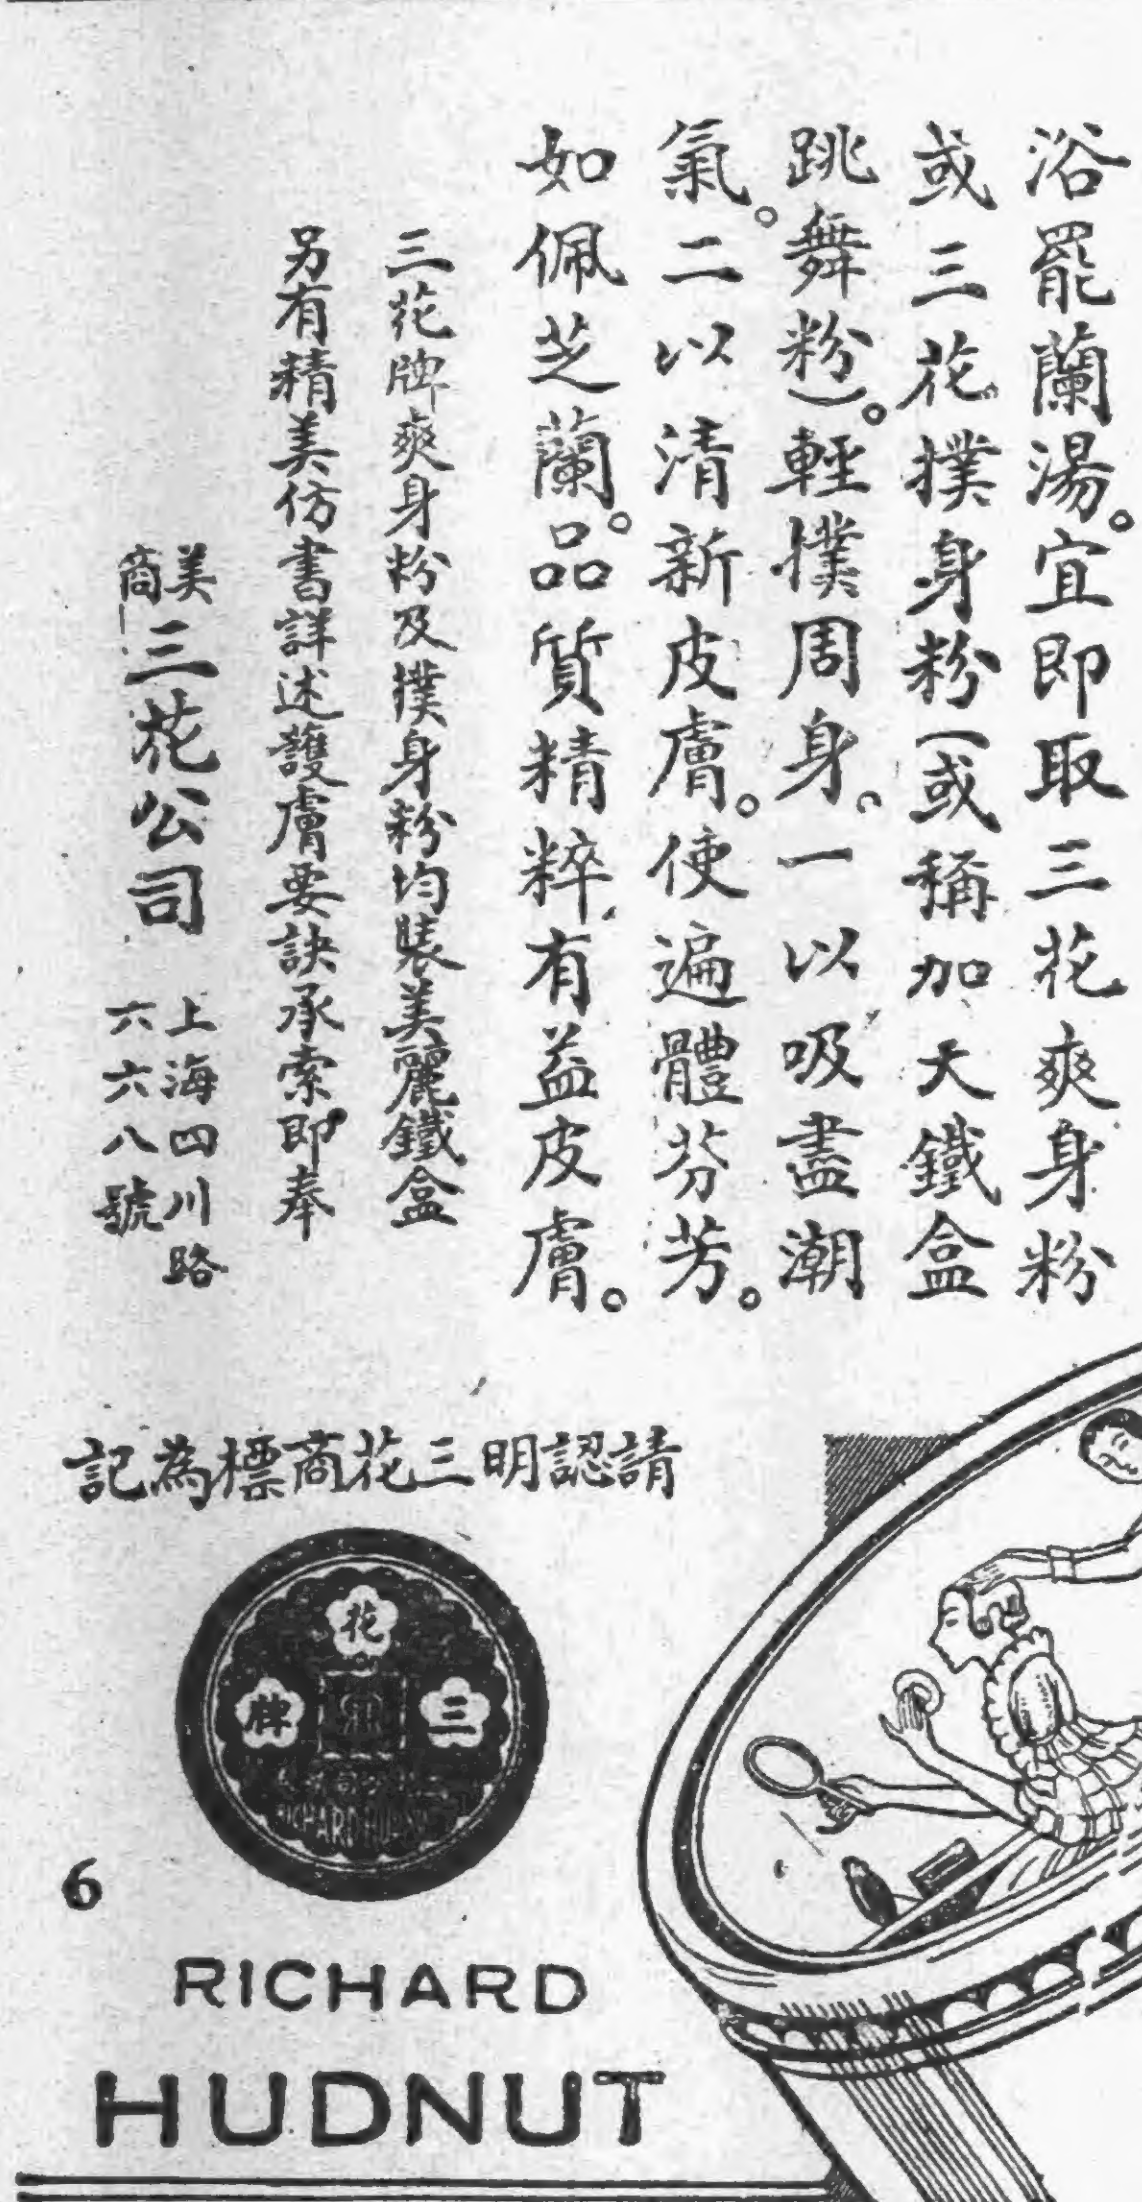 浴罷蘭湯。宜即取三花爽身粉
或三花撲身粉(或稱加大鐵盒
跳舞粉)。輕撲周身。一以吸盡潮
氣。二以清新皮膚。使遍體芬芳。
如佩芝蘭。品質精粹,有益皮膚。
三花牌爽身粉及撲身粉均裝美麗鐵盒
另有精美仿書詳述護膚要訣承索即奉
美商三花公司
上海四川路
六六八號
請認明三花商標為記
三花牌
RICHARD HUDNUT
6
RICHARD
HUDNUT